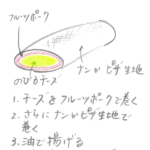 フルーツポーク
ナンかピザ生地
のびるチーズ
1. チーズをフルーツポークで巻く
2. さらにナンかピザ生地で
巻く
3. 油で揚げる